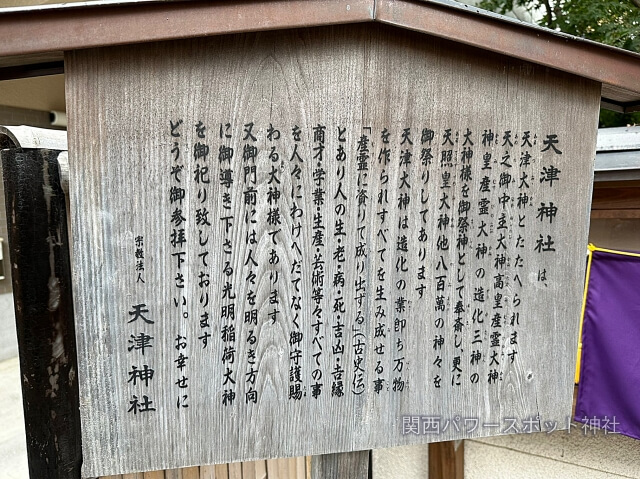 天津神社は、
天津大神とたたへられます
天之御中主大神高皇産霊大神
神皇産霊大神の造化三神の
大神様を御祭神として奉斎し更に
天照皇大神他八百萬の神々を
御祭りしてあります
天津大神は造化の業即ち万物
を作られすべてを生み成せる事
「産霊に資りて成り出ずる」(古史伝)
とあり人の生・老・病・死・吉凶・吉縁
商才・学業・生産・芸術等々すべての事
を人々にわけへだてなく御守護賜
わる大神様であります
又御門前には人々を明るき方向
に御導き下さる光明稲荷大神
を御祀り致しております
どうぞ御参拝下さい。お幸せに
宗教法人 天津神社
関西パワースポット神社